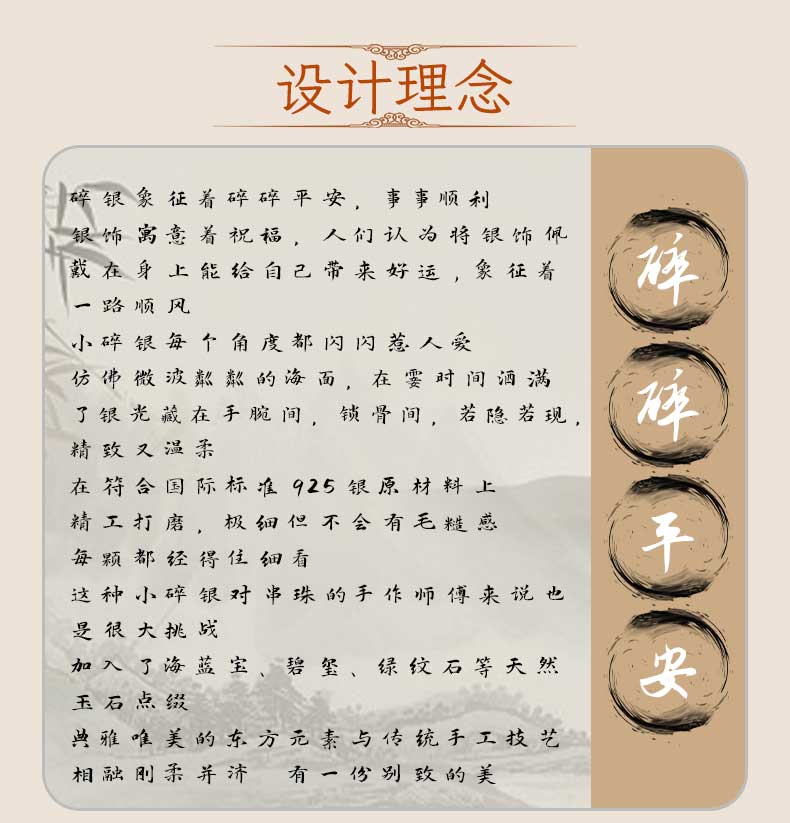 设计理念
碎银象征着碎碎平安，事事顺利
银饰寓意着祝福，人们认为将银饰佩
戴在身上能给自己带来好运，象征着
一路顺风
小碎银每个角度都闪闪惹人爱
仿佛微波粼粼的海面，在霎时间洒满
了银光藏在手腕间，锁骨间，若隐若现，
精致又温柔
在符合国际标准925银原材料上
精工打磨，极细但不会有毛糙感
每颗都经得住细看
这种小碎银对串珠的手作师傅来说也
是很大挑战
加入了海蓝宝、碧玺、绿纹石等天然
玉石点缀
典雅唯美的东方元素与传统手工技艺
相融刚柔并济 有一份别致的美
碎
碎
平
安